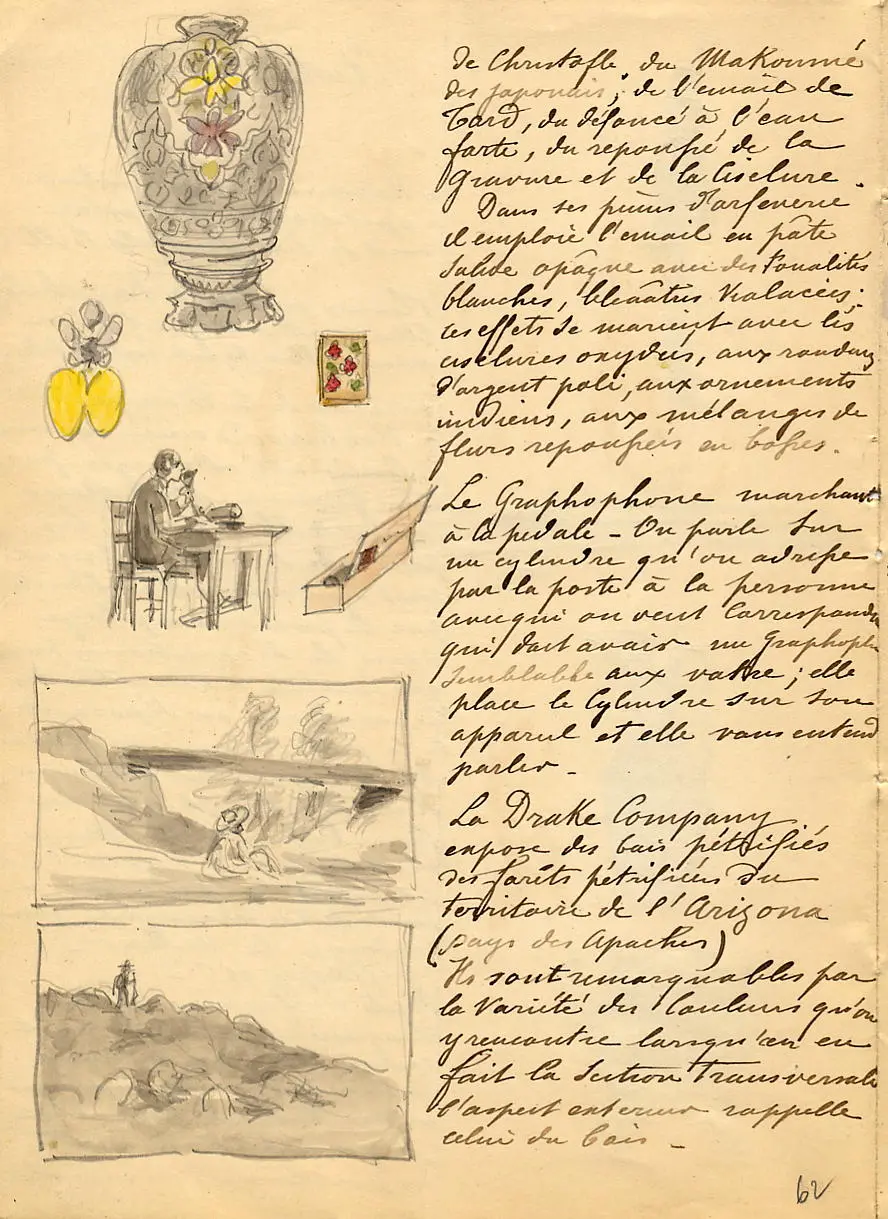 de Christofle du Makoumé
des japonais, de l'émail de
Tard, du défoncé à l'eau
forte, du repoussé de la
gravure et de la Ciselure.
Dans ses pièces d'orfèverie
il emploie l'email en pâte
solide opaque avec des tonalités
blanches, bleuâtres violacées;
ces effets se marient avec les
ciselures oxydées, aux
d'argent poli, aux ornements
indiens, aux mélanges de
fleurs repoussées en bosses.
Le Graphophone marchant
à la pédale - On parle sur
un cylindre qu'on adresse
par la poste à la personne
avec qui on veut Correspondre
qui doit avoir un Graphoph
semblable aux votre ; elle
place le Cylindre sur son
appareil et elle vous entend
parler -
La Drake Company
expose des bois pétrifiés
des forêts pétrifiées du
territoire de l'Arizona
(pays des Apaches)
Ils sont remarquables par
la Variété des Couleurs qu'on
y rencontre lorsqu'on en
fait la Section Transversale
l'aspect exterieur rappelle
celui du bois -
62